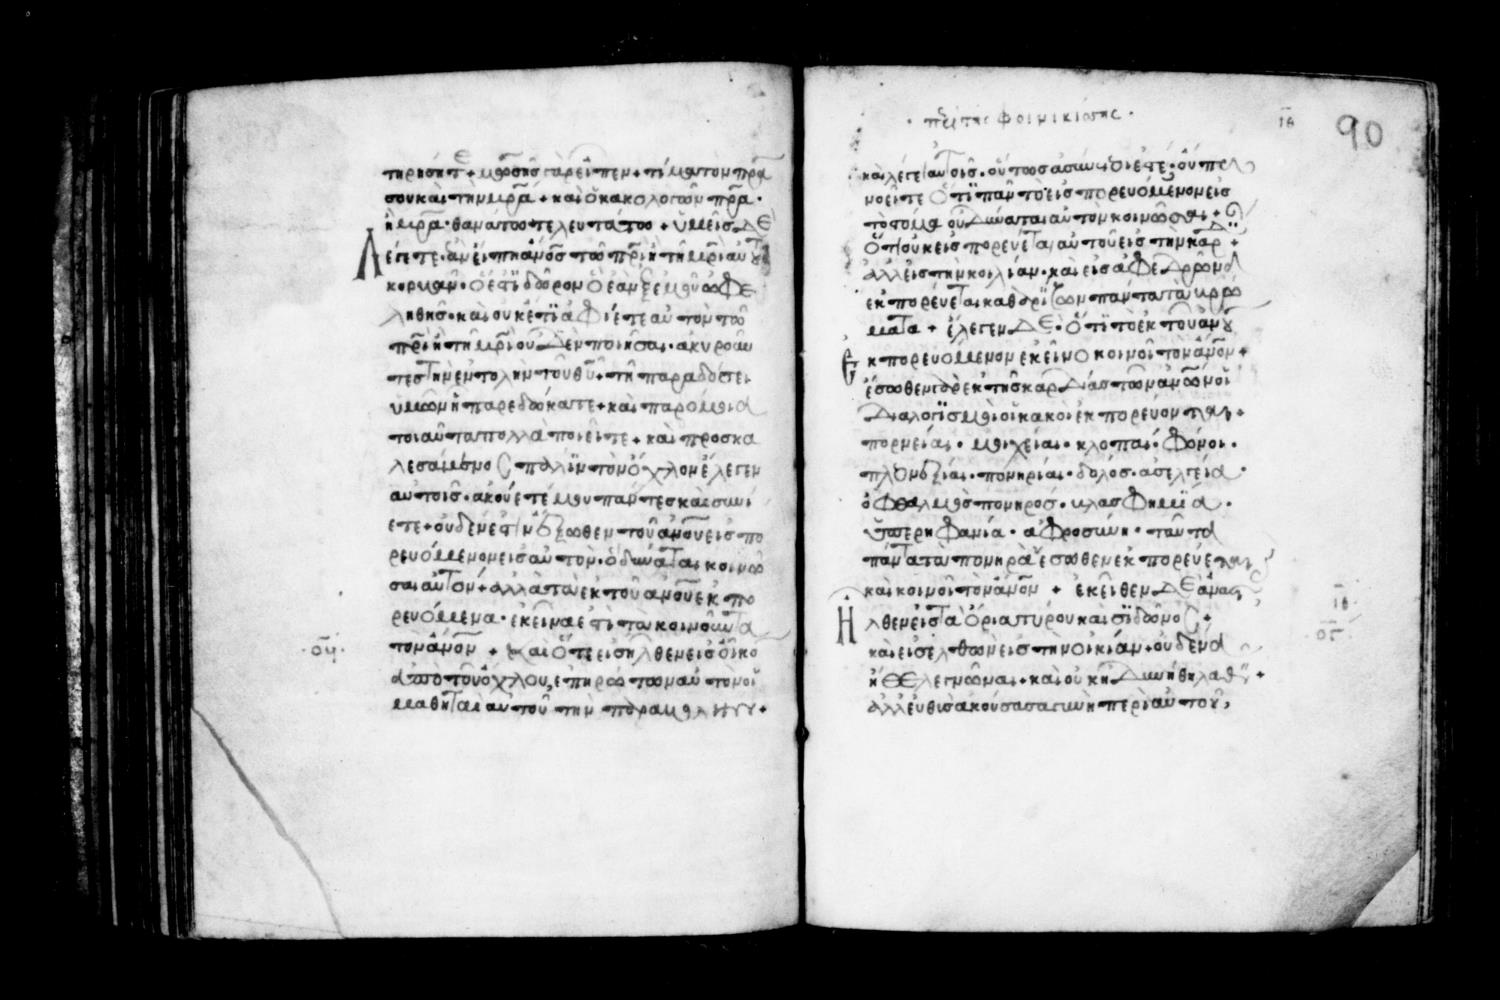 τηρήσητε + μωσῆς γὰρ εἶπεν + τίμα τὸν πρα
σου καὶ τὴν μρα + καὶ ὁ κακολογῶν πρα ·
ἢ μρα · θανάτω τελευτάτω + ὑμεῖς δὲ
λέγετε · ἂν εἴπη ἄνος τῶ πρι ἢ τῆ μρι αὐτοῦ
κορβᾶν · ὅ ἐστι δῶρον ὃ ἐὰν ἐξ ἐμοῦ ὠφε
ληθῆς · καὶ οὐκέτι ἀφίετε αὐτὸν τῶ
πρι ἢ τῆ μρι οὐδὲν ποιῆσαι · ἀκυροῦν
τες τὴν ἐντολὴν τοῦ θυ + τῆ παραδόσει
ὑμῶν ἧ παρεδώκατε + καὶ παρόμοια
τοιαῦτα πολλὰ ποιεῖτε + καὶ προσκα
λεσάμενος πάλιν τὸν ὄχλον ἔλεγεν
αὐτοῖς · ἀκούετέ μου πάντες καὶ συνί
ετε + οὐδέν ἐστιν ἔξωθεν τοῦ ἀνου εἰσπο
ρευόμενον εἰς αὐτὸν · ὃ δύναται κοινῶ
σαι αὐτὸν + ἀλλὰ τὰ ἐκ τοῦ ἀνου ἐκπο
ρευόμενα · ἐκεῖνά ἐστι τὰ κοινοῦντα
τὸν ἄνον + καὶ ὅτε εἰσῆλθεν εἰς οἶκο
ἀπὸ τοῦ ὄχλου, ἐπηρώτων αὐτὸν οἱ
μαθηταὶ αὐτοῦ τὴν παραβολήν +
· οη ·
· περὶ τῆς φοινικίσης ·
ιθ
90
καὶ λέγει αὐτοῖς · οὕτως ἀσύνετοί ἐστέ · οὔπω
νοεῖτε ὅτι πᾶν τὸ εἰσπορευόμενον εἰς
τὸ στόμα οὐ δύναται αὐτὸν κοινῶσαι +
ὅτι οὐκ εἰσπορεύεται αὐτοῦ εἰς τὴν καρδι +
ἀλλ εἰς τὴν κοιλίαν · καὶ εἰς ἀφεδρῶνα
ἐκπορεύεται καθαρίζων πάντα τὰ βρώ
ματα + ἔλεγεν δὲ · ὅτι τὸ ἐκ τοῦ ἀνου
ἐκπορευόμενον ἐκεῖνο κοινοῖ τὸν ἄνον +
ἔσωθεν γὰρ ἐκ τῆς καρδίας τῶν ἀνων οἱ
διαλογισμοὶ οἱ κακοὶ ἐκπορεύονται +
πορνείαι · μοιχείαι · κλοπαί · φόνοι ·
πλεονεξίαι · πονηρίαι · δόλος · ἀσέλγεια ·
ὀφθαλμὸς πονηρός · βλασφημία ·
ὑπερηφανία · ἀφροσύνη · ταῦτα
πάντα τὰ πονηρὰ ἔσωθεν ἐκπορεύεται
καὶ κοινοῖ τὸν ἄνον + ἐκεῖθεν δὲ ἀναστ
ἦλθεν εἰς τὰ ὅρια τύρου καὶ σιδῶνος +
καὶ εἰσελθὼν εἰς τὴν οἰκίαν + οὐδένα
ἤθελε γνῶναι + καὶ οὐκ ἠδυνήθη λαθεῖν +
ἀλλ εὐθὺς ἀκούσασα γυνὴ περὶ αὐτοῦ,
ιθ
οθ